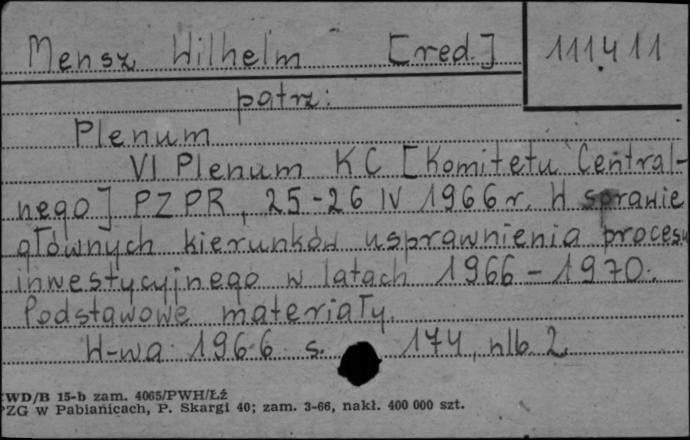 Mensz Wilhelm [red.] 111411
patrz:
Plenum
VI Plenum KC [Komitetu Central-
nego] PZPR, 25-26 IV 1966 r. W sprawie
głównych kierunków usprawnienia procesu
inwestycyjnego w latach 1966-1970.
Podstawowe materiały.
W-wa 1966 s. 174, nlb. 2
WD/B 15-b zam. 4065/PWH/Łź
PZG w Pabianicach, P. Skargi 40; zam. 3-66, nakł. 400 000 szt.